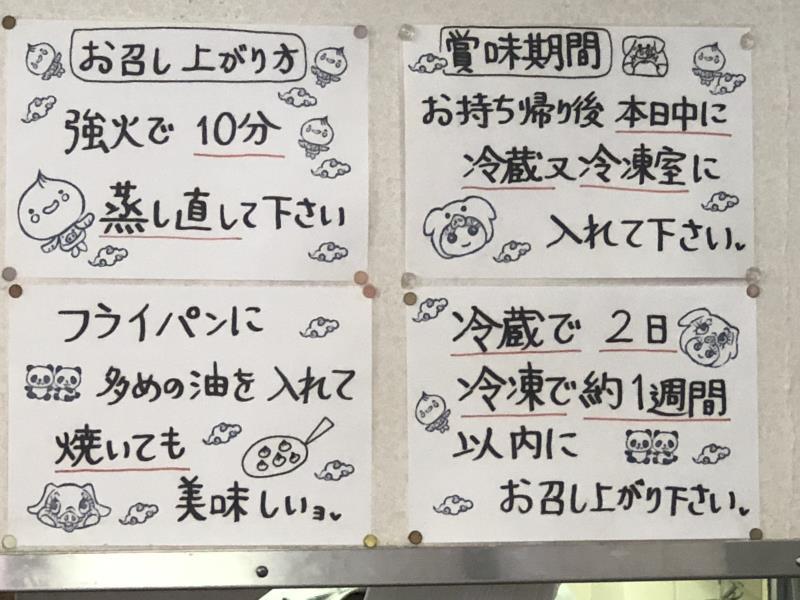 お召し上がり方
強火で 10分
蒸し直して下さい
フライパンに
多めの油を入れて
焼いても
美味しいョ。
賞味期間
お持ち帰り後 本日中に
冷蔵又冷凍室に
入れて下さい。
冷蔵で 2日
冷凍で約1週間
以内に
お召し上がり下さい。